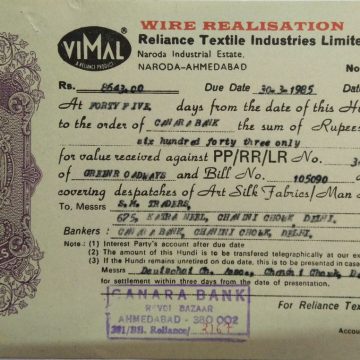 WIRE REALISATION
VIMAL
A RELIANCE PRODUCT
Reliance Textile Industries Limite
Naroda Industrial Estate,
NARODA-AHMEDABAD
No
Rs. 8643.00 Due Date 30.3.1985 Date
At FORTY FIVE, days from the date of this Hu
to the order of CANARA BANK the sum of Rupee
six hundred forty three only
for value received against PP/RR/LR No. 3
of and Bill No. 105090
covering despatches of Art Silk Fabrics/Man
To Messrs S.K. TRADERS,
675, KATRA NEEL, CHANDNI CHOWK DELHI.
Bankers : CANARA BANK, CHANDNI CHOWK, DELHI.
Note : (1) Interest Party's account after due date
(2) The amount of this Hundi to be transferred telegraphically at our e
(3) If the Hundi remains unretired on due date, this to be presented in case
Messrs
for settlement within three days from the date of presentation.
CANARA BANK
REVDI BAZAAR
AHMEDABAD - 380 002
/BB. Reliance/
For Reliance Text
Accoun